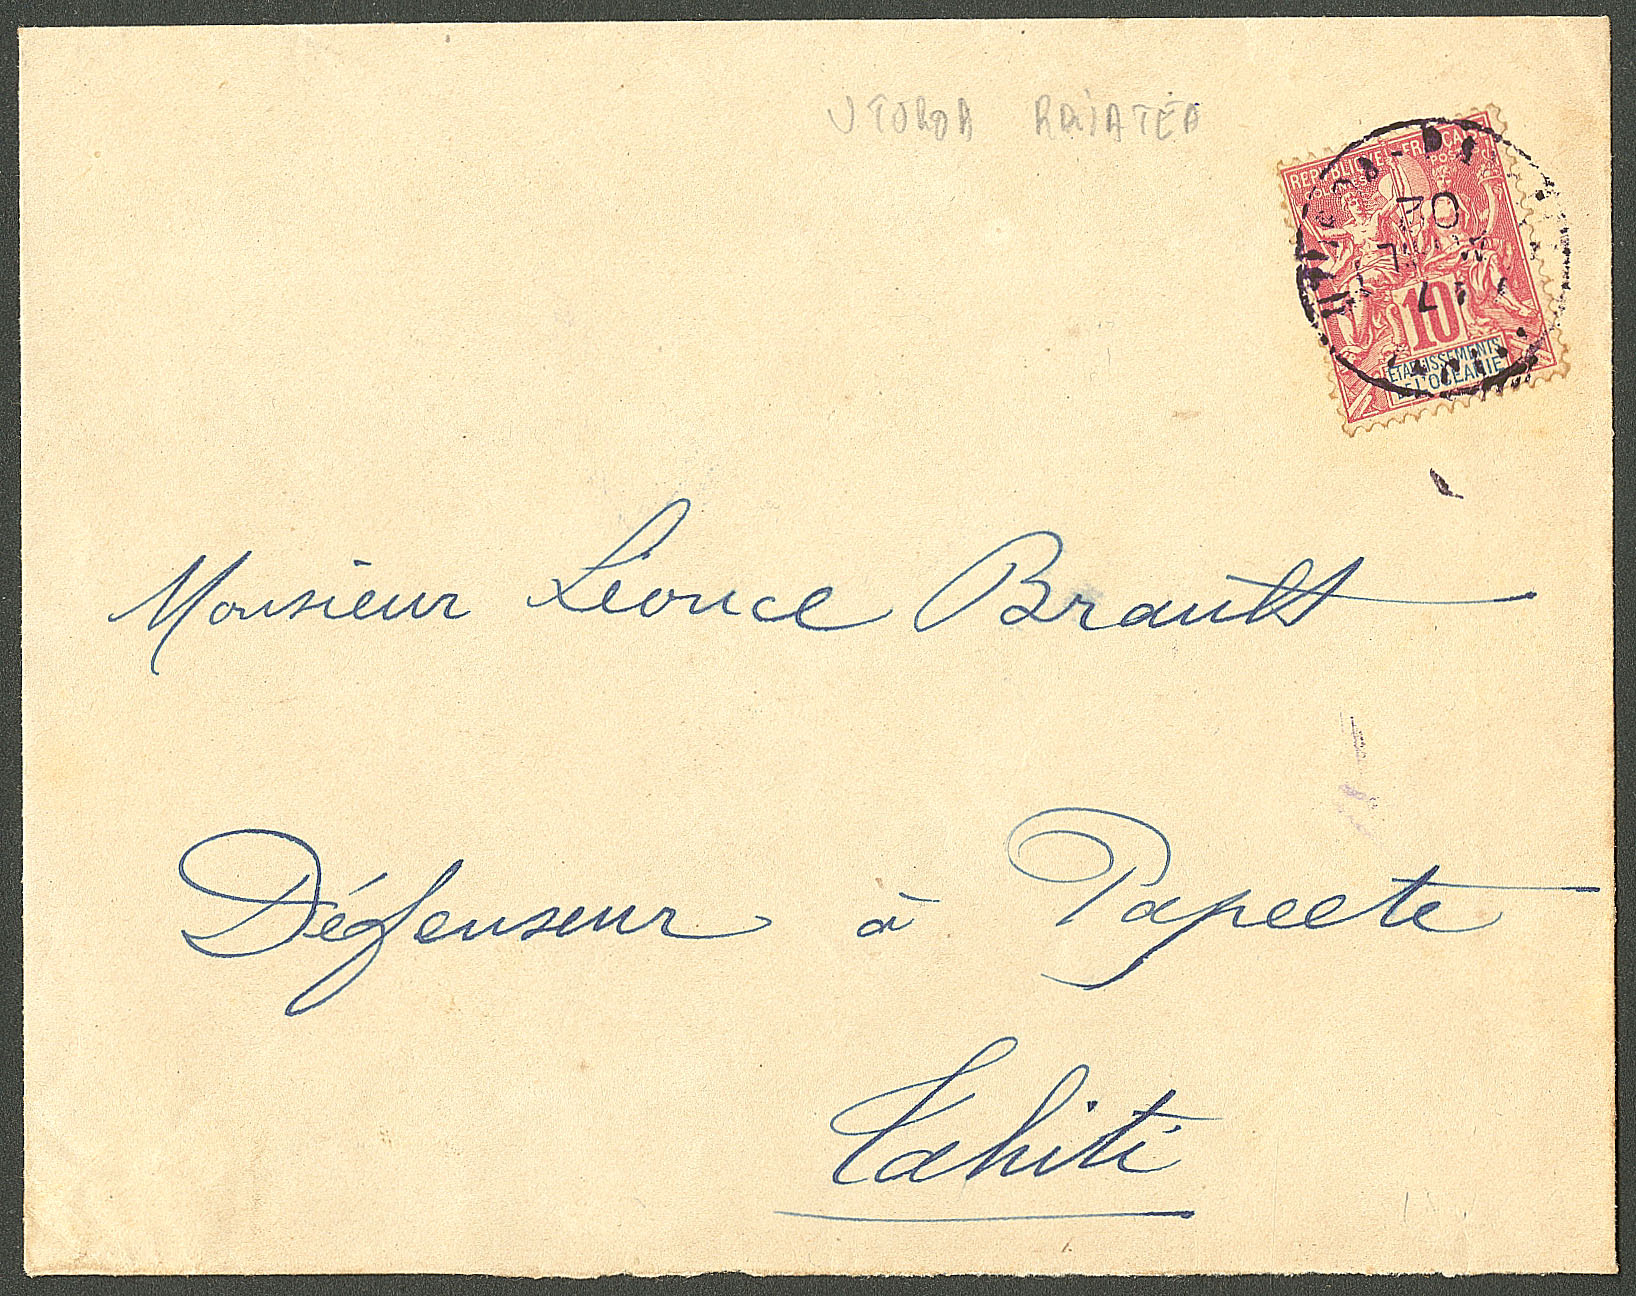 UTUROA RAIATEA
REPUBLIQUE FRANÇAISE
10
ETABLISSEMENTS
DE L'OCEANIE
02
17
Monsieur Léonce Brault
Défenseur à Papeete
Tahiti